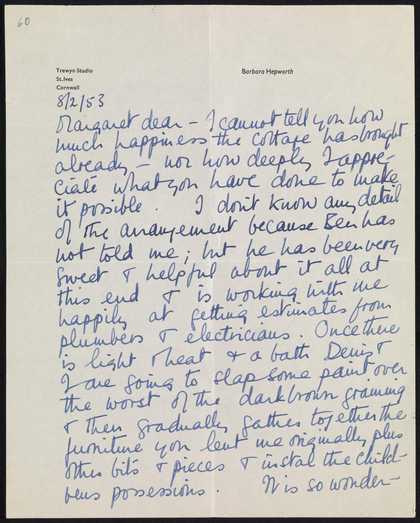 60
Trewyn Studio
St.Ives
Cornwall
Barbara Hepworth
8/2/53
Margaret dear – I cannot tell you how
much happiness the cottage has brought
already – nor how deeply I appre-
ciate what you have done to make
it possible. I don't know any detail
of the arrangement because Ben has
not told me; but he has been very
sweet & helpful about it all at
this end & is working with me
happily at getting estimates from
plumbers & electricians. Once there
is light & heat & a bath Denis &
I are going to slap some paint over
the worst of the dark brown graining
& then gradually gather together the
furniture you lent me originally plus
other bits & pieces & instal the child-
rens possessions. It is so wonder-